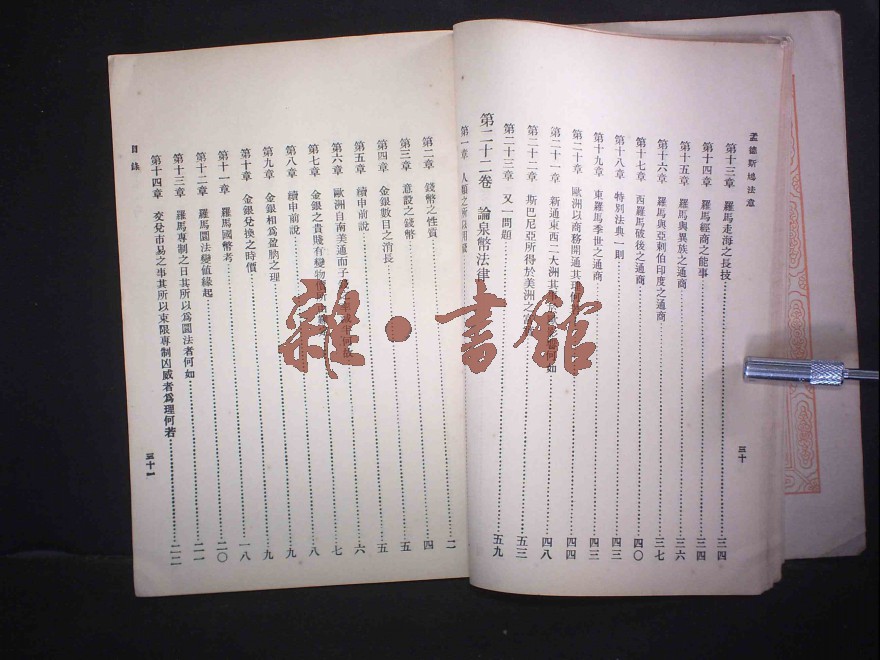 孟德斯鳩法意
第十三章 羅馬走海之長技 三四
第十四章 羅馬經商之能事 三四
第十五章 羅馬與異族之通商 三六
第十六章 羅馬與亞剌伯印度之通商 三七
第十七章 西羅馬破後之通商 四〇
第十八章 特別法典一則 四三
第十九章 東羅馬季世之通商 四三
第二十章 歐洲以商務開通其 四四
第二十一章 新通東西二大洲其 何如 四八
第二十二章 斯巴尼亞所得於美洲之 五三
第二十三章 又一問題 五九
第二十二卷 論泉幣法律
三十
第一章 人類之所以用 二
第二章 錢幣之性質 四
第三章 意設之錢幣 五
第四章 金銀數目之消長 五
第五章 續申前說 六
第六章 歐洲自南美通而子 何故 七
第七章 金銀之貴賤有變物 八
第八章 續申前說 九
第九章 金銀相為盈朒之理 九
第十章 金銀兌換之時價 一八
第十一章 羅馬國幣考 二〇
第十二章 羅馬圜法變值緣起 二一
第十三章 羅馬專制之日其所以為圜法者何如 二一
第十四章 交兌市易之事其所以束限專制凶威者為理何若 二二
目錄
三十一
雜·書館